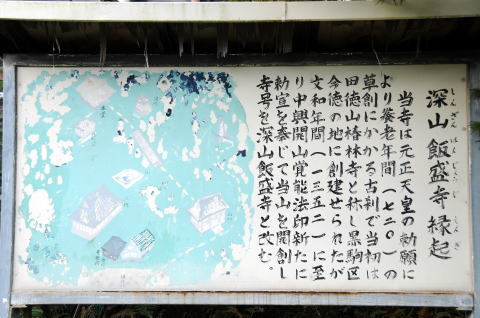 深山飯盛寺縁起
しんざんはんじょうじえんぎ
当寺は元正天皇の勅願に
より養老年間(七二〇)の
草創にかかる古刹で当初は
田徳山椿林寺と称し黒駒区
今徳の地に創建せられたが
文和年間(一三五二)に至
り中興開山覚能法印新たに
勅宣を奉じて当山を開創し
寺号を深山飯盛寺と改む。
本堂